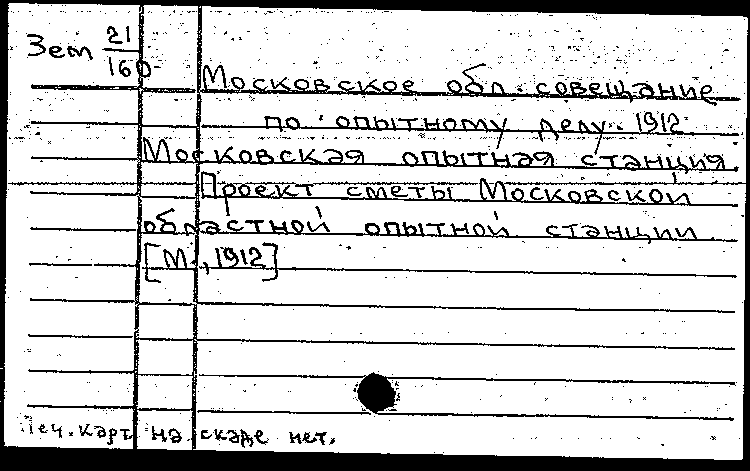 Зем 21/160
Московское обл. совещание
по опытному делу. 1912
Московская опытная станция
Проект сметы Московской
областной опытной станции
[М., 1912]
Печ. карт на скаде нет.